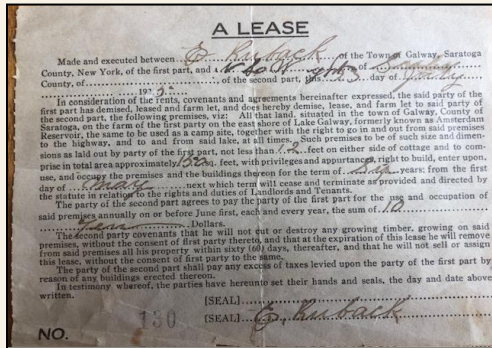 A LEASE
Made and executed between E Ruback of the Town of Galway, Saratoga
County, New York, of the first part, and of
County, of of the second part, this 3 day of
192
In consideration of the rents, covenants and agreements hereinafter expressed, the said party of the
first part has demised, leased and farm let, and does hereby demise, lease, and farm let to said party of
the second part, the following premises, viz: All that land, situated in the town of Galway, County of
Saratoga, on the farm of first party on the east shore of Lake Galway, formerly known as Amsterdam
Reservoir, the same to be used as a camp site, together with the right to go in and out from said premises
to the highway, and to and from said lake, at all times. Such premises to be of such size and dimen-
sions as laid out by party of the first part, not less than 2 feet on either side of cottage and to com-
prise in total area approximately sq. feet, with privileges and appurtances, right to build, enter upon,
use, and occupy the premises and the buildings thereon for the term of years; from the first
day of next which term will cease and terminate as provided and directed by
the statute in relation to the rights and duties of Landlords and Tenants.
The party of the second part agrees to pay the party of the first part for the use and occupation of
said premises annually on or before June first, each and every year, the sum of 10
Dollars.
The second party covenants that he will not cut or destroy any growing timber, growing on said
premises, without the consent of first party thereto, and that at the expiration of this lease he will remove
from said premises all his property within sixty (60) days, thereafter, and that he will not sell or assign
this lease, without the consent of first party to the same.
The party of the second part shall pay any excess of taxes levied upon the party of the first part by
reason of any buildings erected thereon.
In testimony whereof, the parties have hereunto set their hands and seals, the day and date above
written.
[SEAL]
130
[SEAL] E Ruback
NO.